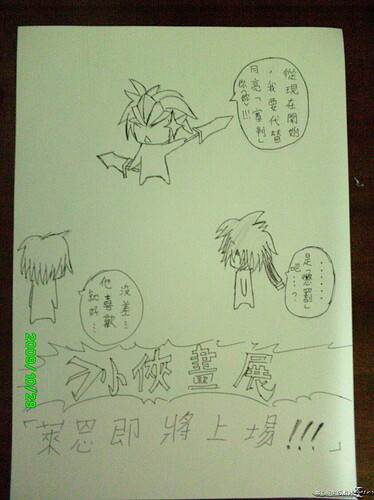 從現在開始
,我要代替
月亮「審判」
你們!!!
………
是「懲罰」
吧…?
沒差…
他喜歡
就好…
小俠畫展
「萊恩即將上場!!!」
2009/10/28